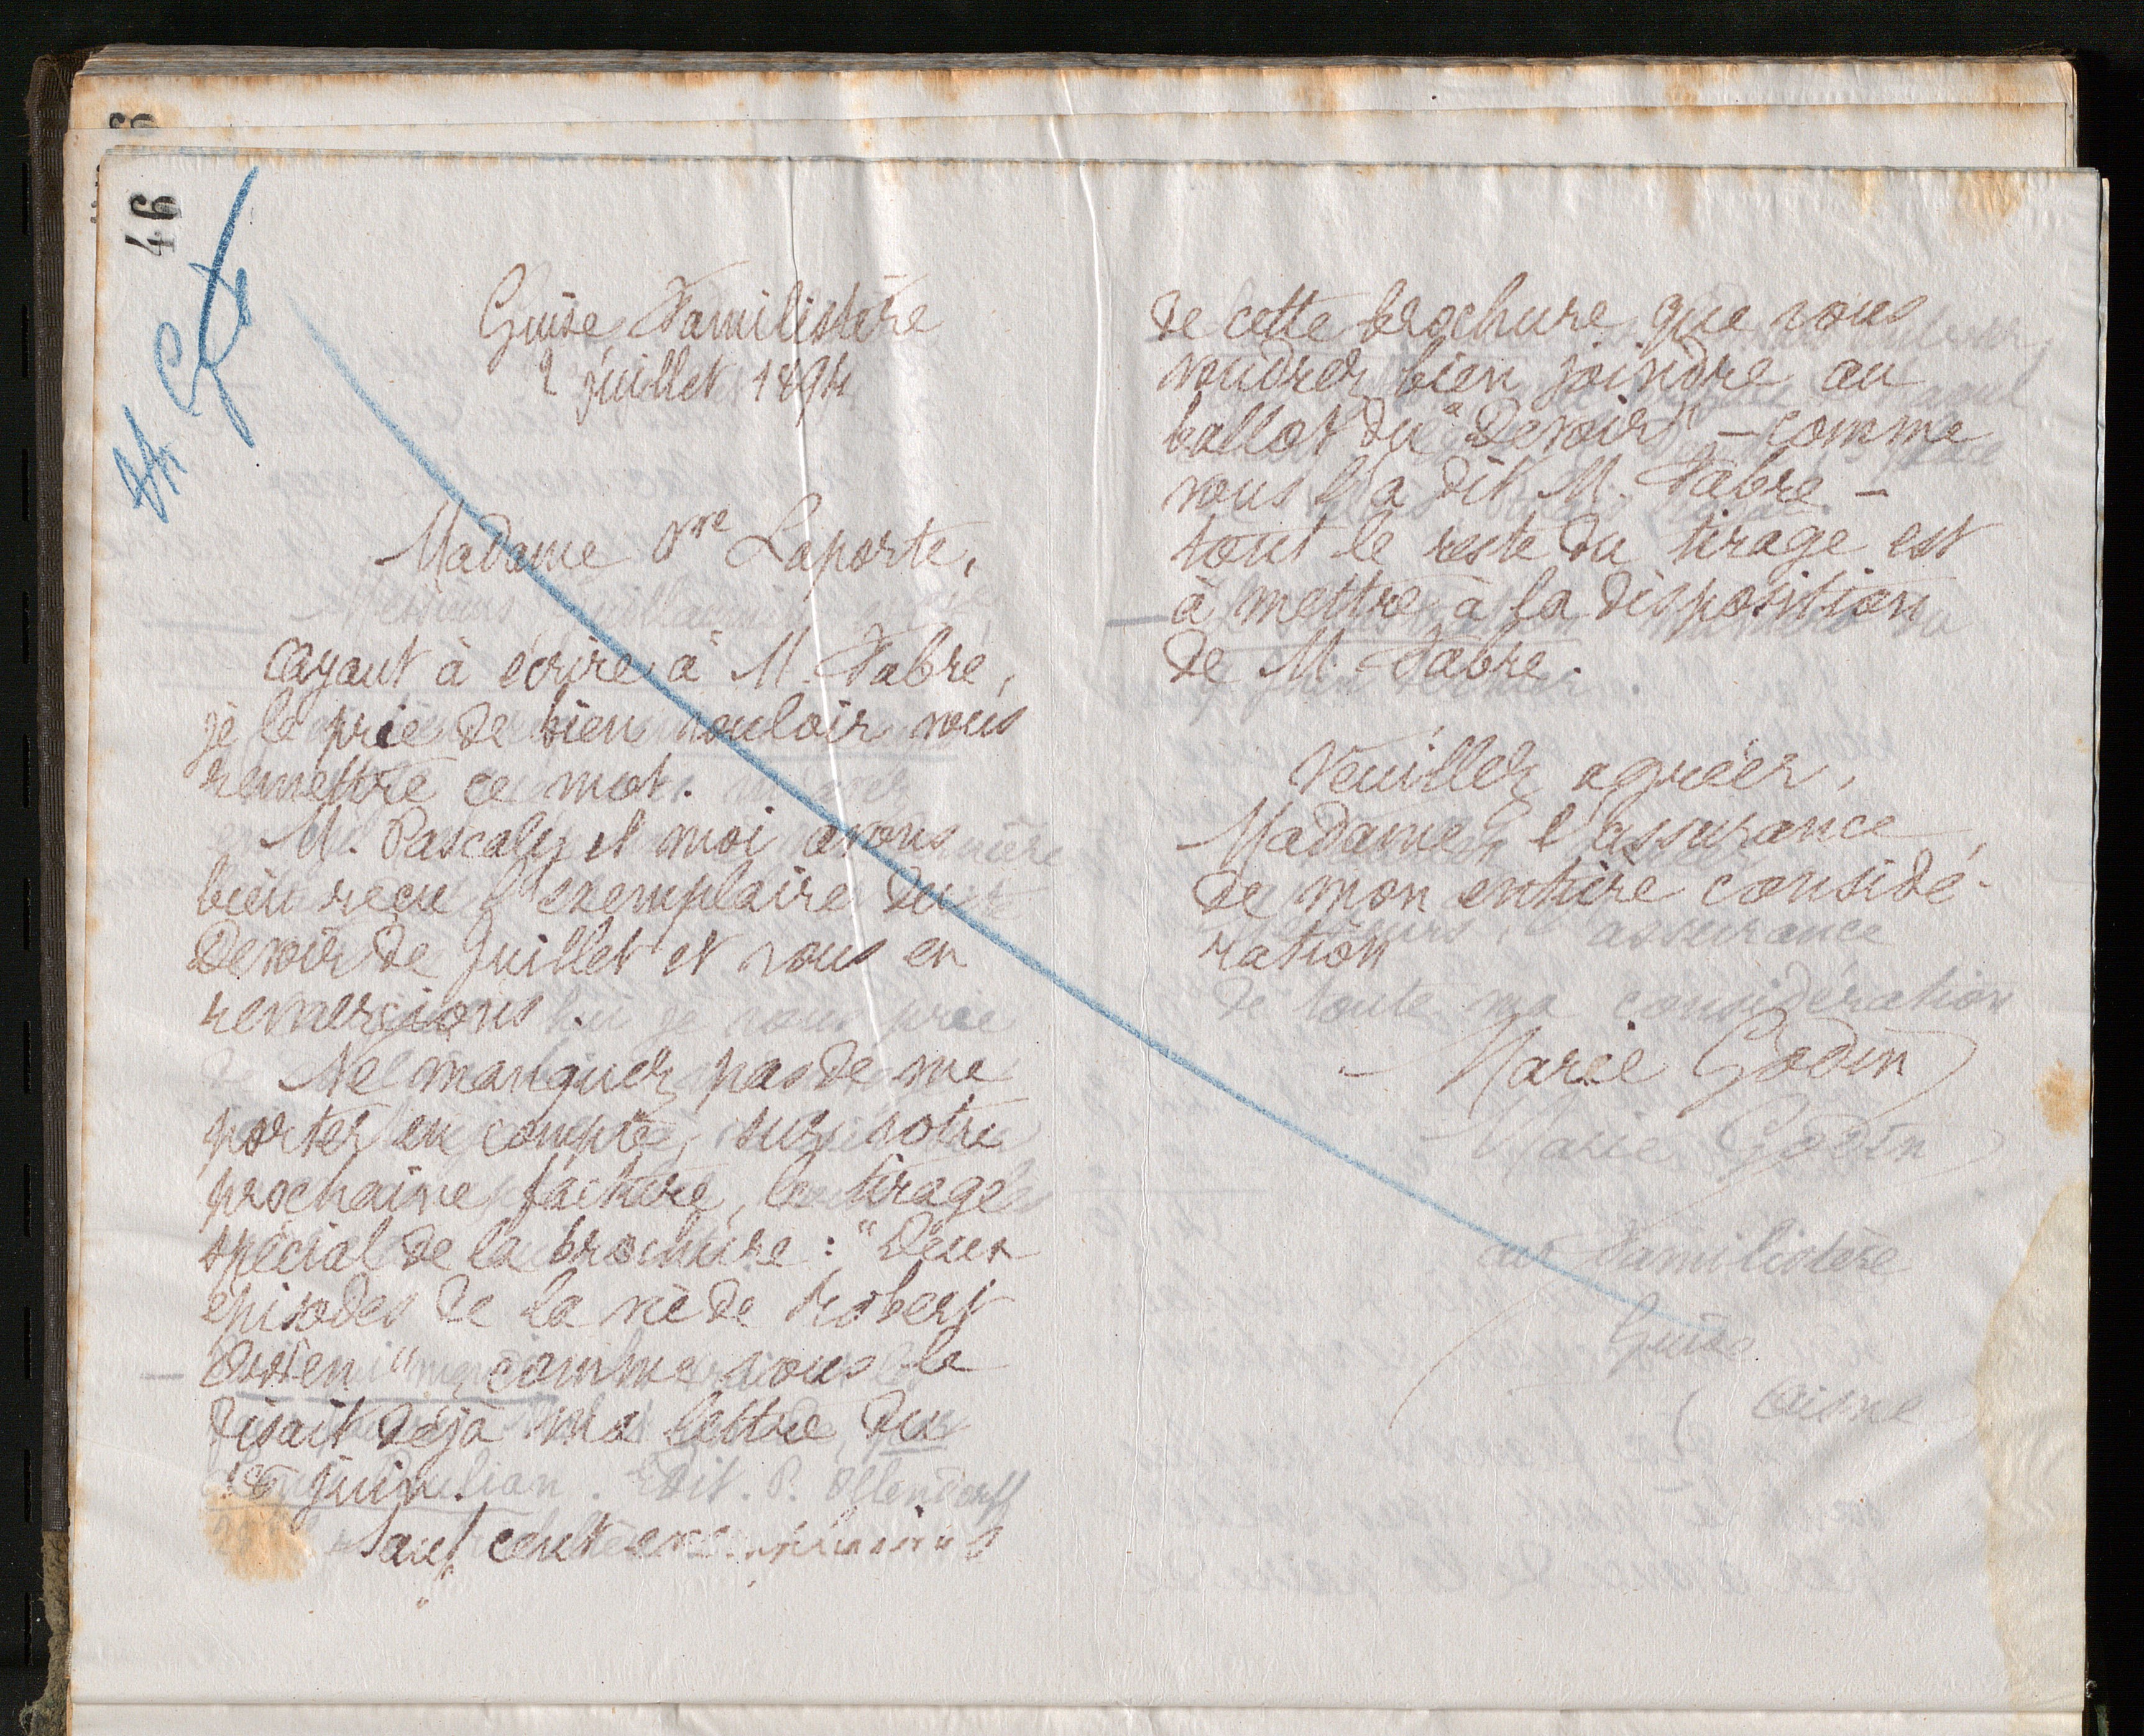 46
Guise Familistère
2 juillet 1894
Madame Vve Laporte,
Ayant à écrire à M. Fabre,
je le prie de bien vouloir vous
remettre ce mot.
M. Pascaly et moi avons
bien reçu l'exemplaire du
Devoir de Juillet et vous en
remercions.
Ne manquez pas de me
porter en compte, sur votre
prochaine facture, le tirage
spécial de la brochure : "Deux
épisodes de la vie de Robert
Owen" comme vous le
disait déjà ma lettre du
18 juin.
Sauf cent exemplaires
de cette brochure que vous
voudrez bien joindre au
ballot du "Devoir" – comme
vous l'a dit M. Fabre –
tout le reste du tirage est
à mettre à la disposition
de M. Fabre.
Veuillez agréer,
Madame, l'assurance
de mon entière considé-
ration
Marie Godin